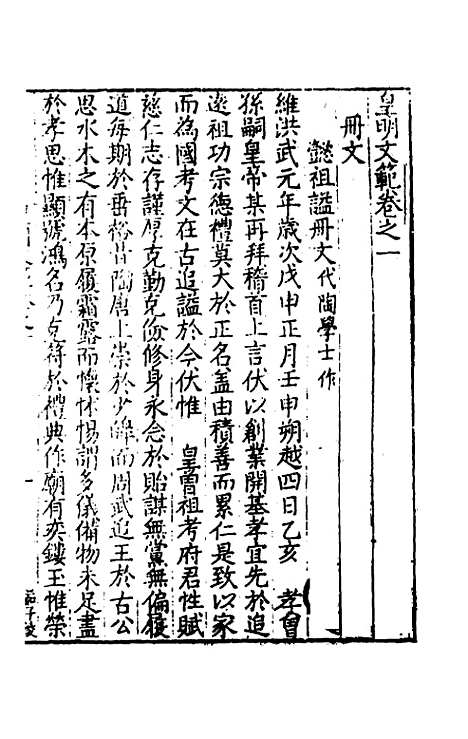 皇明文範卷之一
冊文
懿祖謚冊文代陶學士作
維洪武元年歲次戊申正月壬申朔越四日乙亥 孝曾
孫嗣皇帝某再拜稽首上言伏以創業開基孝宜先於追
遠祖功宗德禮莫大於正名盖由積善而累仁是致以家
而為國考文在古追謚於今伏惟 皇曾祖考府君性賦
慈仁志存謹厚克勤克儉修身永念於貽謀無黨無偏履
道每期於垂裕昔陶唐上崇於少皥而周武追王於古公
思水木之有本原履霜露而懷怵惕謂多儀備物未足盡
於孝思惟顯號鴻名乃克符於禮典作廟有奕鏤玉惟榮
一